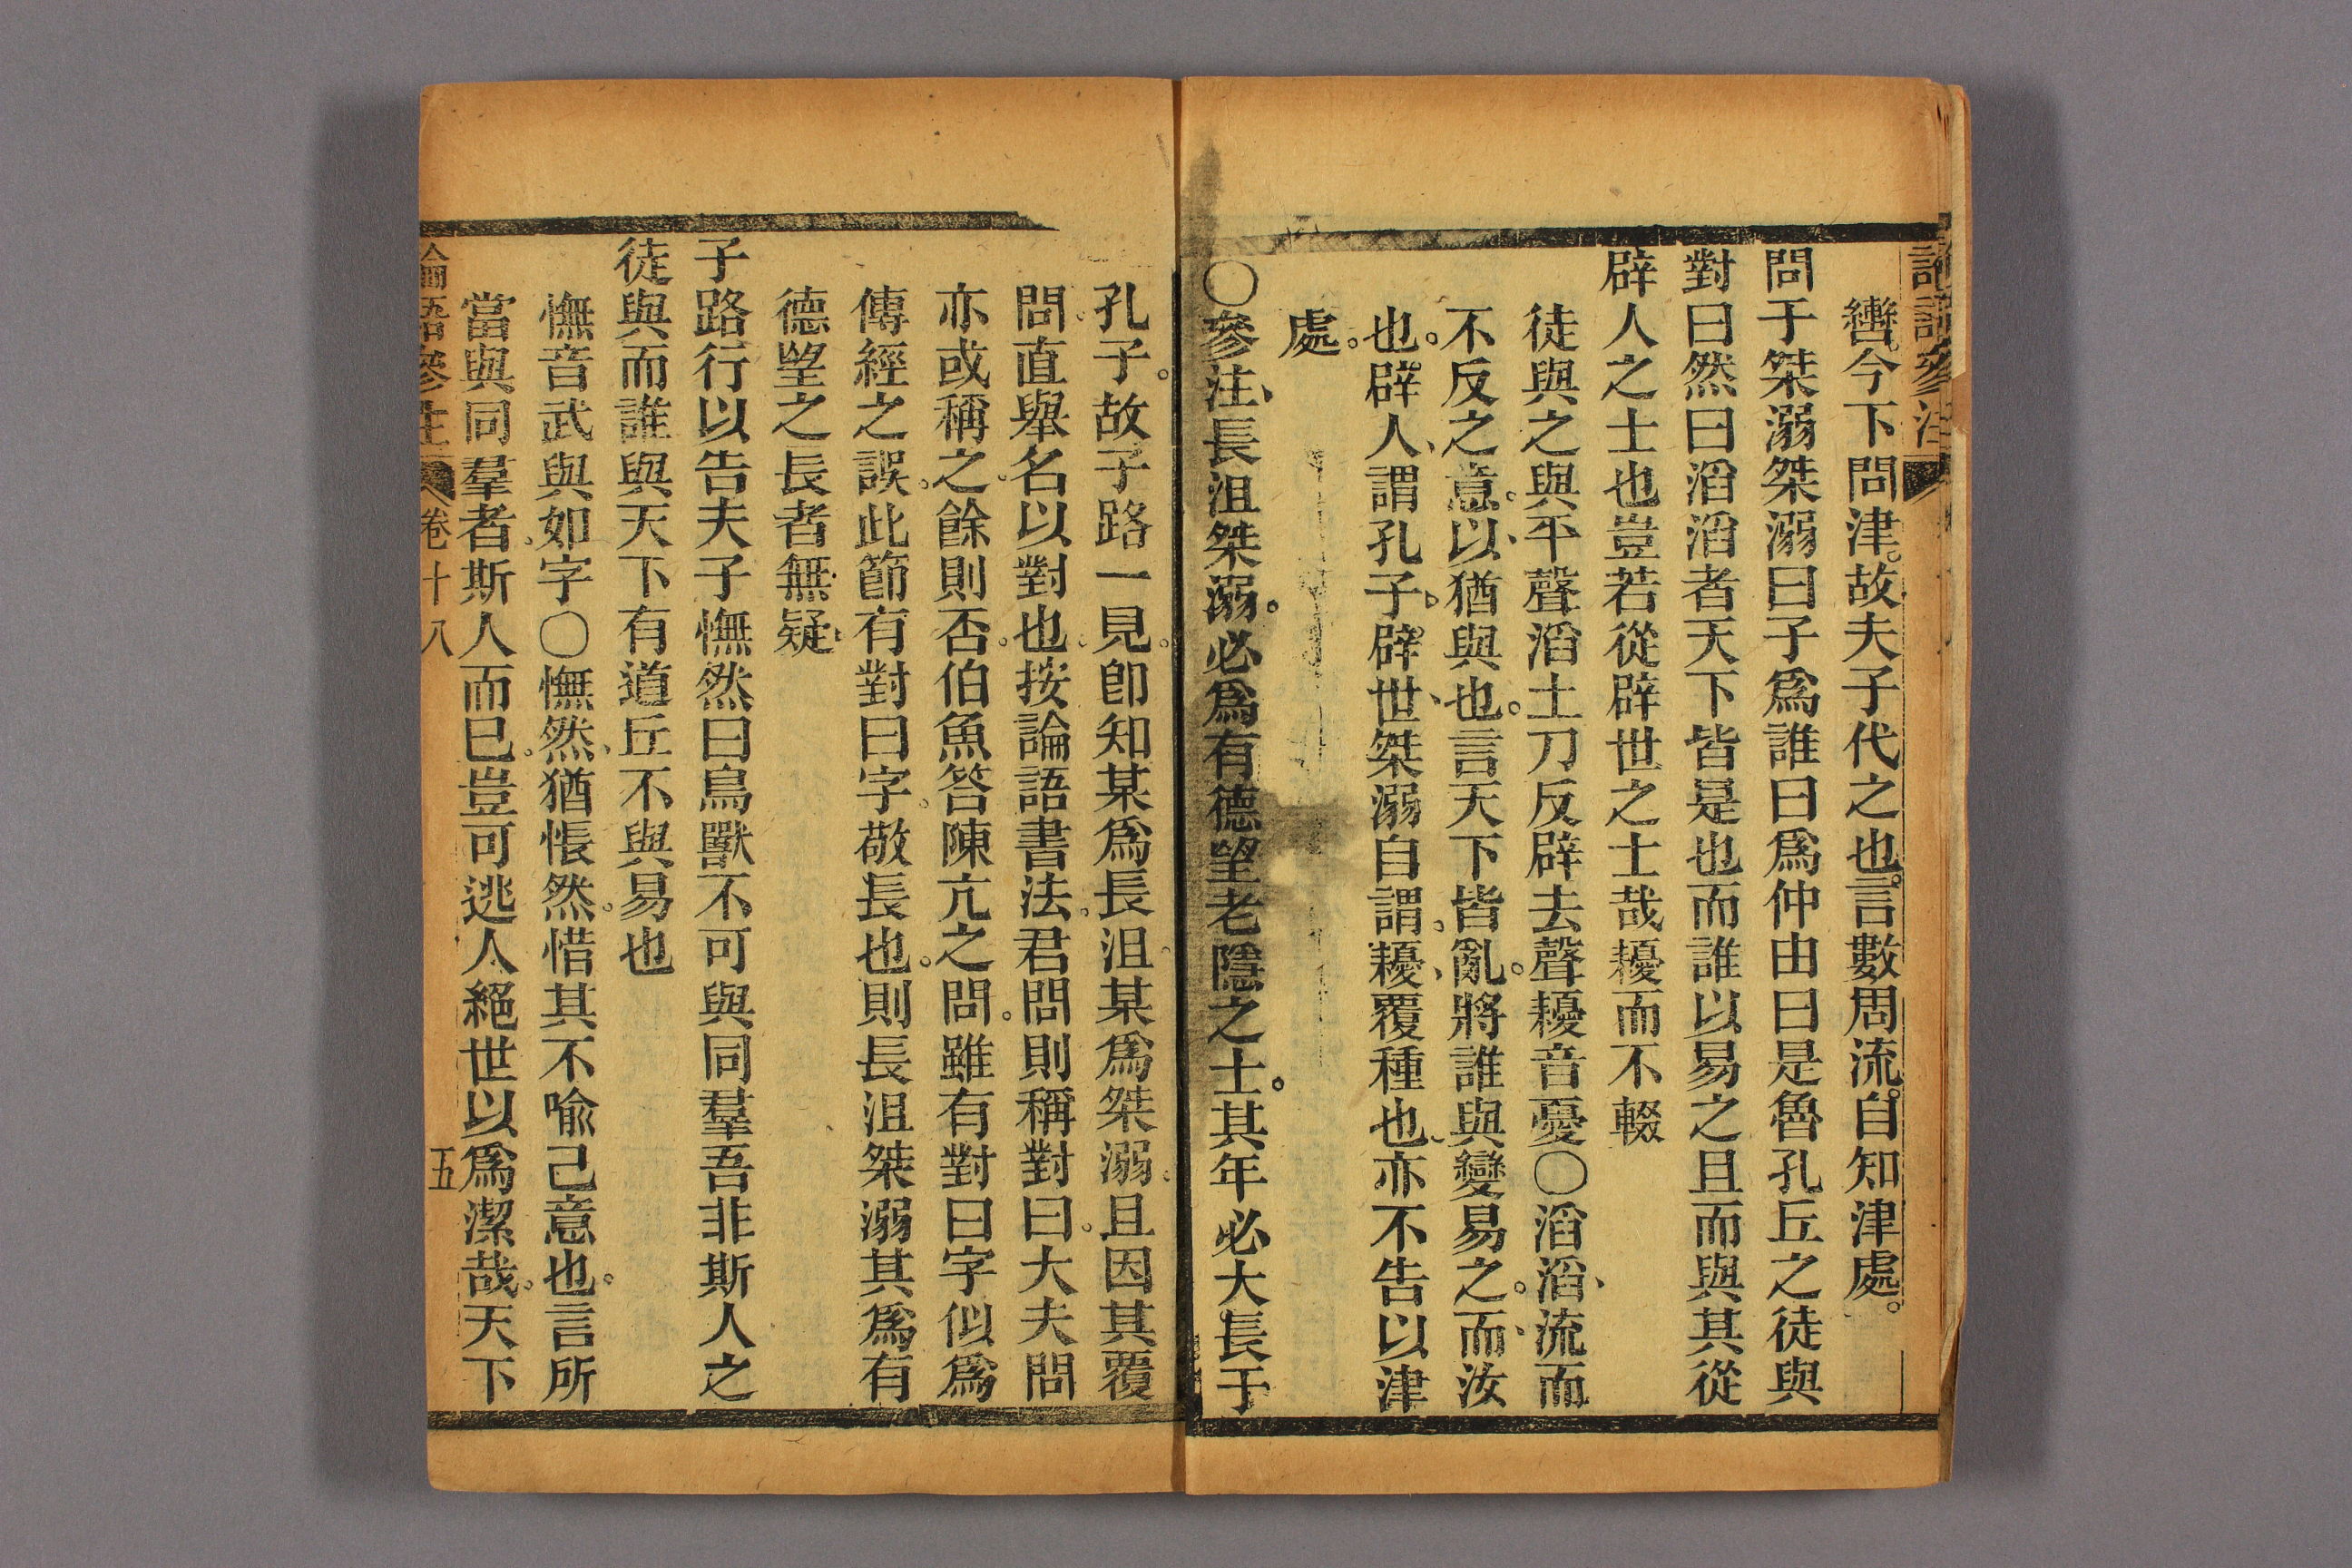 轡。今下問津。故夫子代之也。言數周流。自知津處。
問于桀溺桀溺曰子爲誰曰爲仲由曰是魯孔丘之徒與
對曰然曰滔滔者天下皆是也而誰以易之且而與其從
辟人之士也豈若從辟世之士哉耰而不輟
徒與之與平聲滔土刀反辟去聲耰音憂〇滔滔、流而
不反之意。以、猶與也。言天下皆亂。將誰與變易之。而、汝
也。辟人、謂孔子。辟世、桀溺自謂。耰、覆種也、亦不告以津
處。
〇參注、長沮桀溺。必爲有德望老隱之士。其年必大長于
孔子。故子路一見。卽知某爲長沮。某爲桀溺。且因其覆
問。直舉名以對也。按論語書法。君問則稱對曰。大夫問
亦或稱之。餘則否。伯魚答陳亢之問。雖有對曰字似爲
傳經之誤。此節有對曰字。敬長也。則長沮桀溺其爲有
德望之長者無疑
子路行以告夫子憮然曰鳥獸不可與同羣吾非斯人之
徒與而誰與天下有道丘不與易也
憮音武與如字〇憮然、猶悵然。惜其不喩己意也。言所
當與同羣者、斯人而已。豈可逃人絕世以爲潔哉。天下
論語參注 卷十八 五